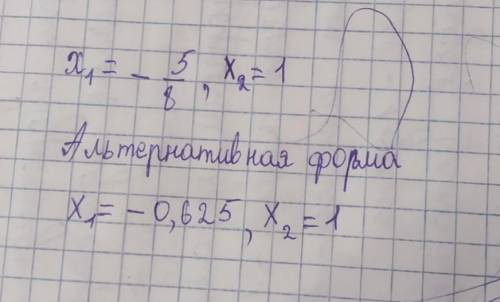 x₁ = - 5/8, x₂ = 1
Альтернативная форма
x₁ = - 0,625, x₂ = 1